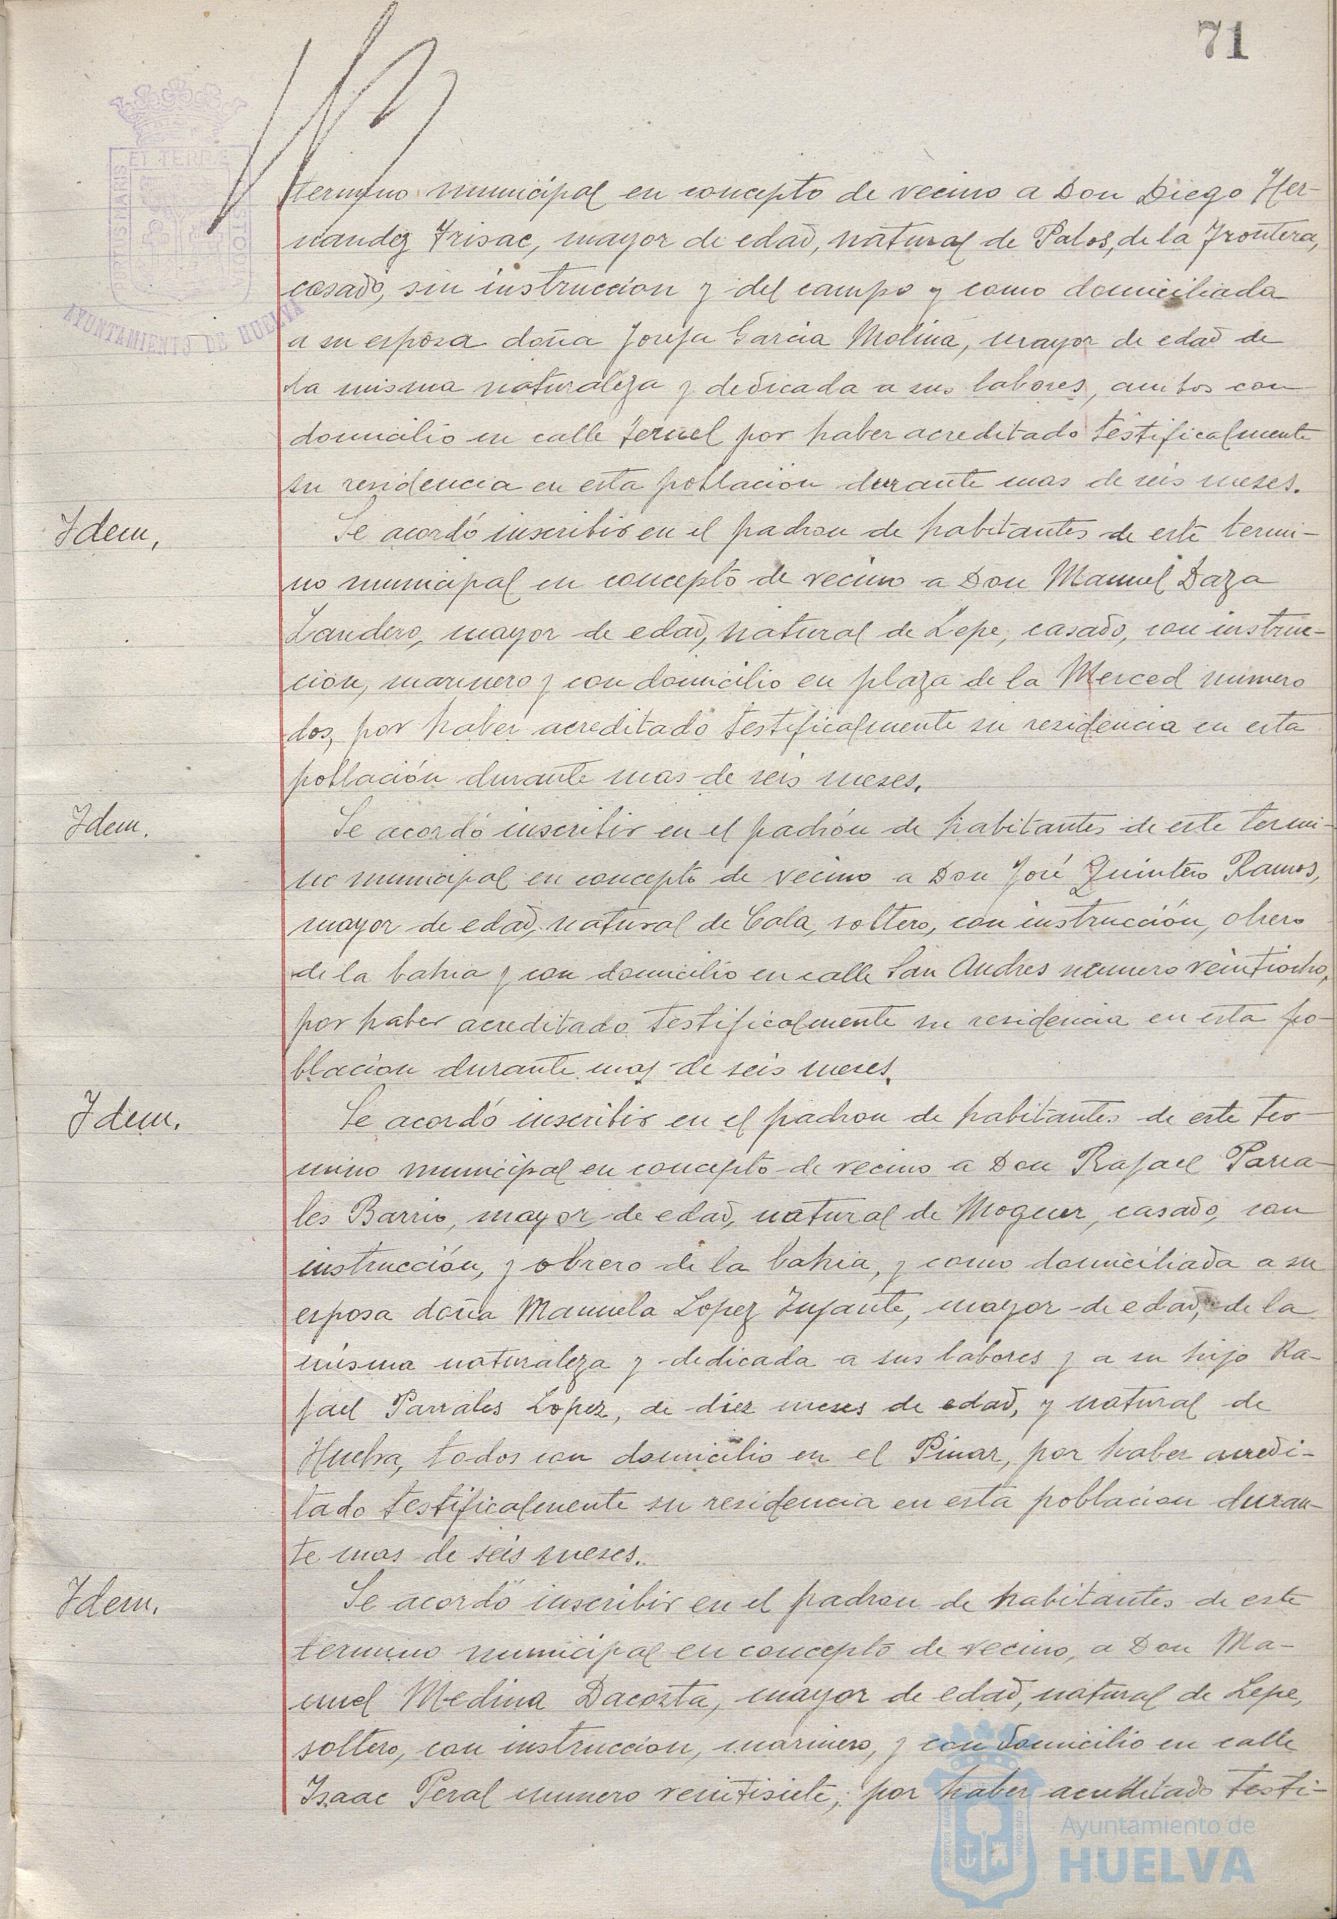 71
ET TERRÆ
PORTUS MARIS
CUSTODIA
AYUNTAMIENTO DE HUELVA
termino municipal en concepto de vecino a Don Diego Her-
nandez Frisac, mayor de edad, natural de Palos, de la Frontera,
casado, sin instruccion y del campo y como domiciliada
a su esposa doña Josefa Garcia Molina, mayor de edad de
la misma naturaleza y dedicada a sus labores, ambos con
domicilio en calle Teruel por haber acreditado testificalmente
su residencia en esta poblacion durante mas de seis meses.
Idem,
Se acordó inscribir en el padron de habitantes de este termi-
no municipal en concepto de vecino a Don Manuel Daza
Landero, mayor de edad, natural de Lepe, casado, con instruc-
cion, marinero y con domicilio en plaza de la Merced numero
dos, por haber acreditado testificalmente su residencia en esta
población durante mas de seis meses.
Idem.
Se acordó inscribir en el padrón de habitantes de este termi-
no municipal en concepto de vecino a Don José Quintero Ramos,
mayor de edad, natural de Cala, soltero, con instrucción, obrero
de la bahia y con domicilio en calle San Andres numero veintiocho,
por haber acreditado testificalmente su residencia en esta po-
blacion durante mas de seis meses.
Idem.
Se acordó inscribir en el padron de habitantes de este ter-
mino municipal en concepto de vecino a Don Rafael Parra-
les Barrio, mayor de edad, natural de Moguer, casado, con
instrucción, y obrero de la bahia, y como domiciliada a su
esposa doña Manuela Lopez Infante, mayor de edad, de la
misma naturaleza y dedicada a sus labores y a su hijo Ra-
fael Parrales Lopez, de diez meses de edad, y natural de
Huelva, todos con domicilio en el Pinar, por haber acredi-
tado testificalmente su residencia en esta poblacion duran-
te mas de seis meses.
Idem.
Se acordó inscribir en el padron de habitantes de este
termino municipal en concepto de vecino, a Don Ma-
nuel Medina Dacosta, mayor de edad, natural de Lepe,
soltero, con instruccion, marinero, y con domicilio en calle
Isaac Peral numero veintisiete, por haber acreditado testi-
Ayuntamiento de
HUELVA